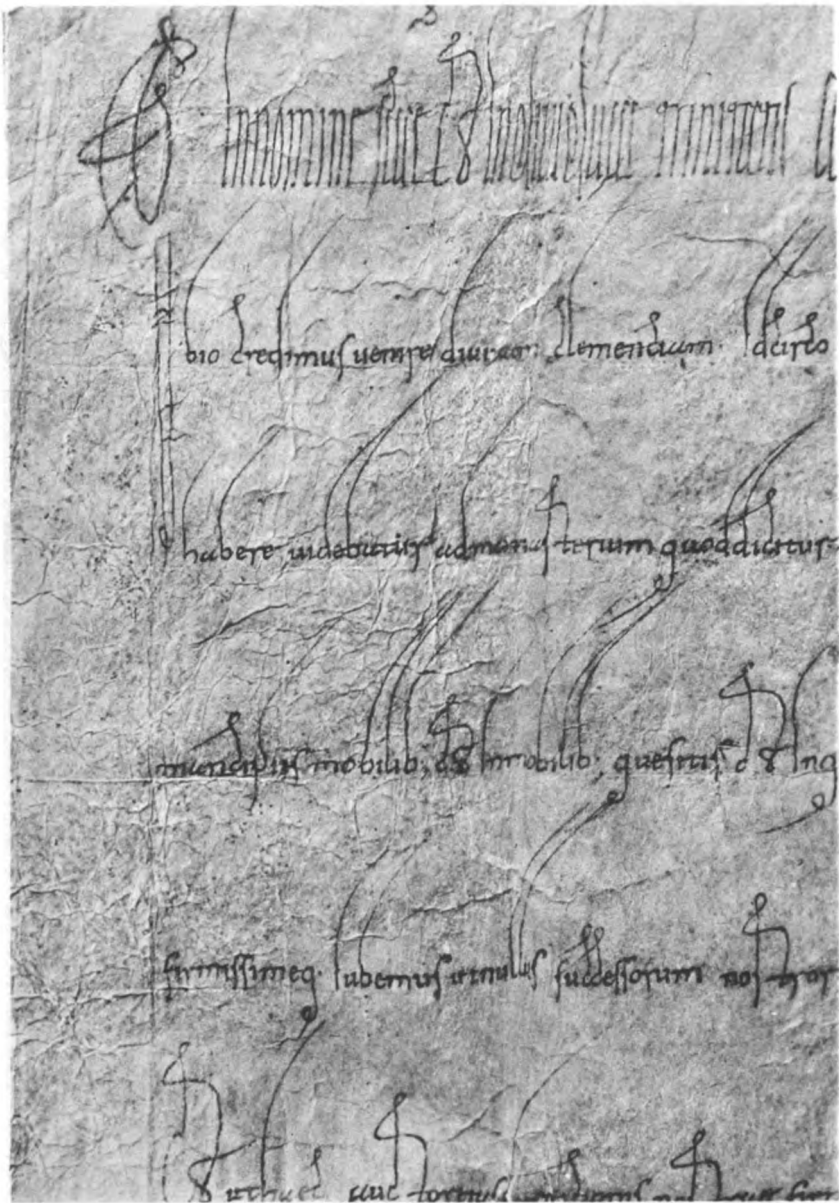 In nomine sce & indiuidue trinitatis
bio credimus uenire clementiam. Idcirco
habere ad monasterium quod dicitur
mancipiis mobilib; & inmobilib; quesitis & inq
firmissimeq; iubemus ut nullus successorum nostror
& ut haec